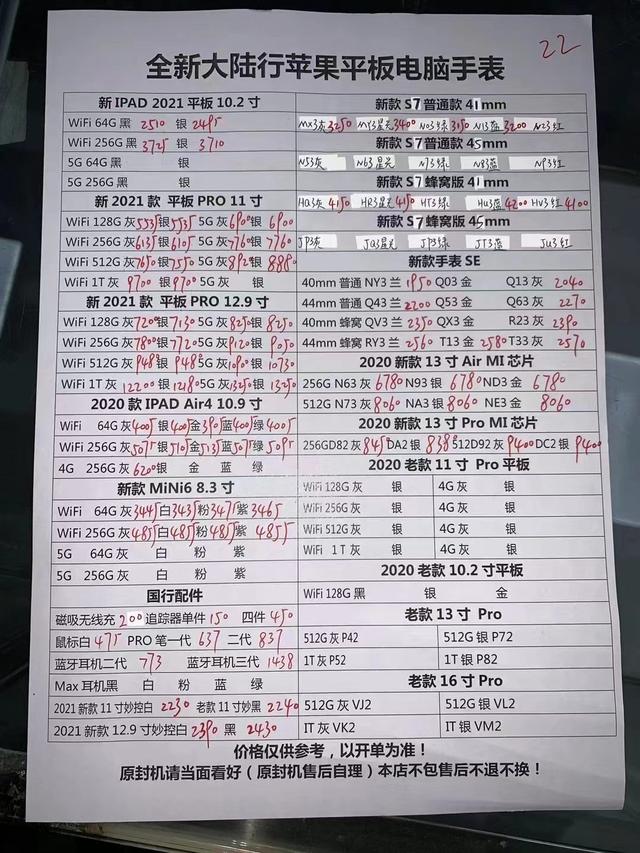 22
全新大陆行苹果平板电脑手表
新 IPAD 2021 平板 10.2 寸
WiFi 64G 黑 2510 银 2495
WiFi 256G 黑 3725 银 3710
5G 64G 黑 银
5G 256G 黑 银
新 2021 款 平板 PRO 11 寸
WiFi 128G 灰 5535 银 5535 5G 灰 6900 银 6900
WiFi 256G 灰 6135 银 6105 5G 灰 7760 银 7760
WiFi 512G 灰 7650 银 7550 5G 灰 8920 银 8880
WiFi 1T 灰 9700 银 9700 5G 灰 银
新 2021 款 平板 PRO 12.9 寸
WiFi 128G 灰 7200 银 7130 5G 灰 8250 银 8250
WiFi 256G 灰 7800 银 7720 5G 灰 9120 银 9050
WiFi 512G 灰 9480 银 9480 5G 灰 10900 银 10730
WiFi 1T 灰 12200 银 12180 5G 灰 13250 银 13250
2020 款 IPAD Air4 10.9 寸
WiFi 64G 灰 4005 银 4005 金 3905 蓝 4005 绿 4005
WiFi 256G 灰 5075 银 5105 金 5135 蓝 5075 绿 5095
4G 256G 灰 6200 银 金 蓝 绿
新款 MiNi6 8.3 寸
WiFi 64G 灰 3445 白 3435 粉 3475 紫 3465
WiFi 256G 灰 4855 白 4855 粉 4855 紫 4855
5G 64G 灰 白 粉 紫
5G 256G 灰 白 粉 紫
国行配件
磁吸无线充 200 追踪器单件 150 四件 450
鼠标白 475 PRO 笔一代 637 二代 837
蓝牙耳机二代 773 蓝牙耳机三代 1438
Max 耳机黑 白 粉 蓝 绿
2021 新款 11 寸妙控白 2230 老款 11 寸妙黑 2240
2021 新款 12.9 寸妙控白 2390 黑 2430
新款 S7 普通款 41mm
MX3灰 3250 MY3星光 3400 N03绿 3150 N13蓝 3200 N23红
新款 S7 普通款 45mm
N53灰 N63星光 N73绿 N83蓝 NP3红
新款 S7 蜂窝版 41mm
HQ3灰 4150 HR3星光 4150 HT3绿 HU3蓝 4200 HV3红 4100
新款 S7 蜂窝版 45mm
JP3灰 JQ3星光 JP3绿 JT3蓝 JU3红
新款手表 SE
40mm 普通 NY3 兰 1950 Q03 金 Q13 灰 2040
44mm 普通 Q43 兰 2200 Q53 金 Q63 灰 2270
40mm 蜂窝 QV3 兰 2350 QX3 金 R23 灰 2390
44mm 蜂窝 RY3 兰 2560 T13 金 2580 T33 灰 2570
2020 新款 13 寸 Air MI 芯片
256G N63 灰 6780 N93 银 6780 ND3 金 6780
512G N73 灰 8060 NA3 银 8060 NE3 金 8060
2020 新款 13 寸 Pro MI 芯片
256GD82 灰 8450 DA2 银 8380 512D92 灰 9400 DC2 银 9400
2020 老款 11 寸 Pro 平板
WiFi 128G 灰 银 4G 灰 银
WiFi 256G 灰 银 4G 灰 银
WiFi 512G 灰 银 4G 灰 银
WiFi 1T 灰 银 4G 灰 银
2020 老款 10.2 寸平板
WiFi 128G 黑 银 金
老款 13 寸 Pro
512G 灰 P42 512G 银 P72
1T 灰 P52 1T 银 P82
老款 16 寸 Pro
512G 灰 VJ2 512G 银 VL2
IT 灰 VK2 IT 银 VM2
价格仅供参考，以开单为准！
原封机请当面看好（原封机售后自理）本店不包售后不退不换！